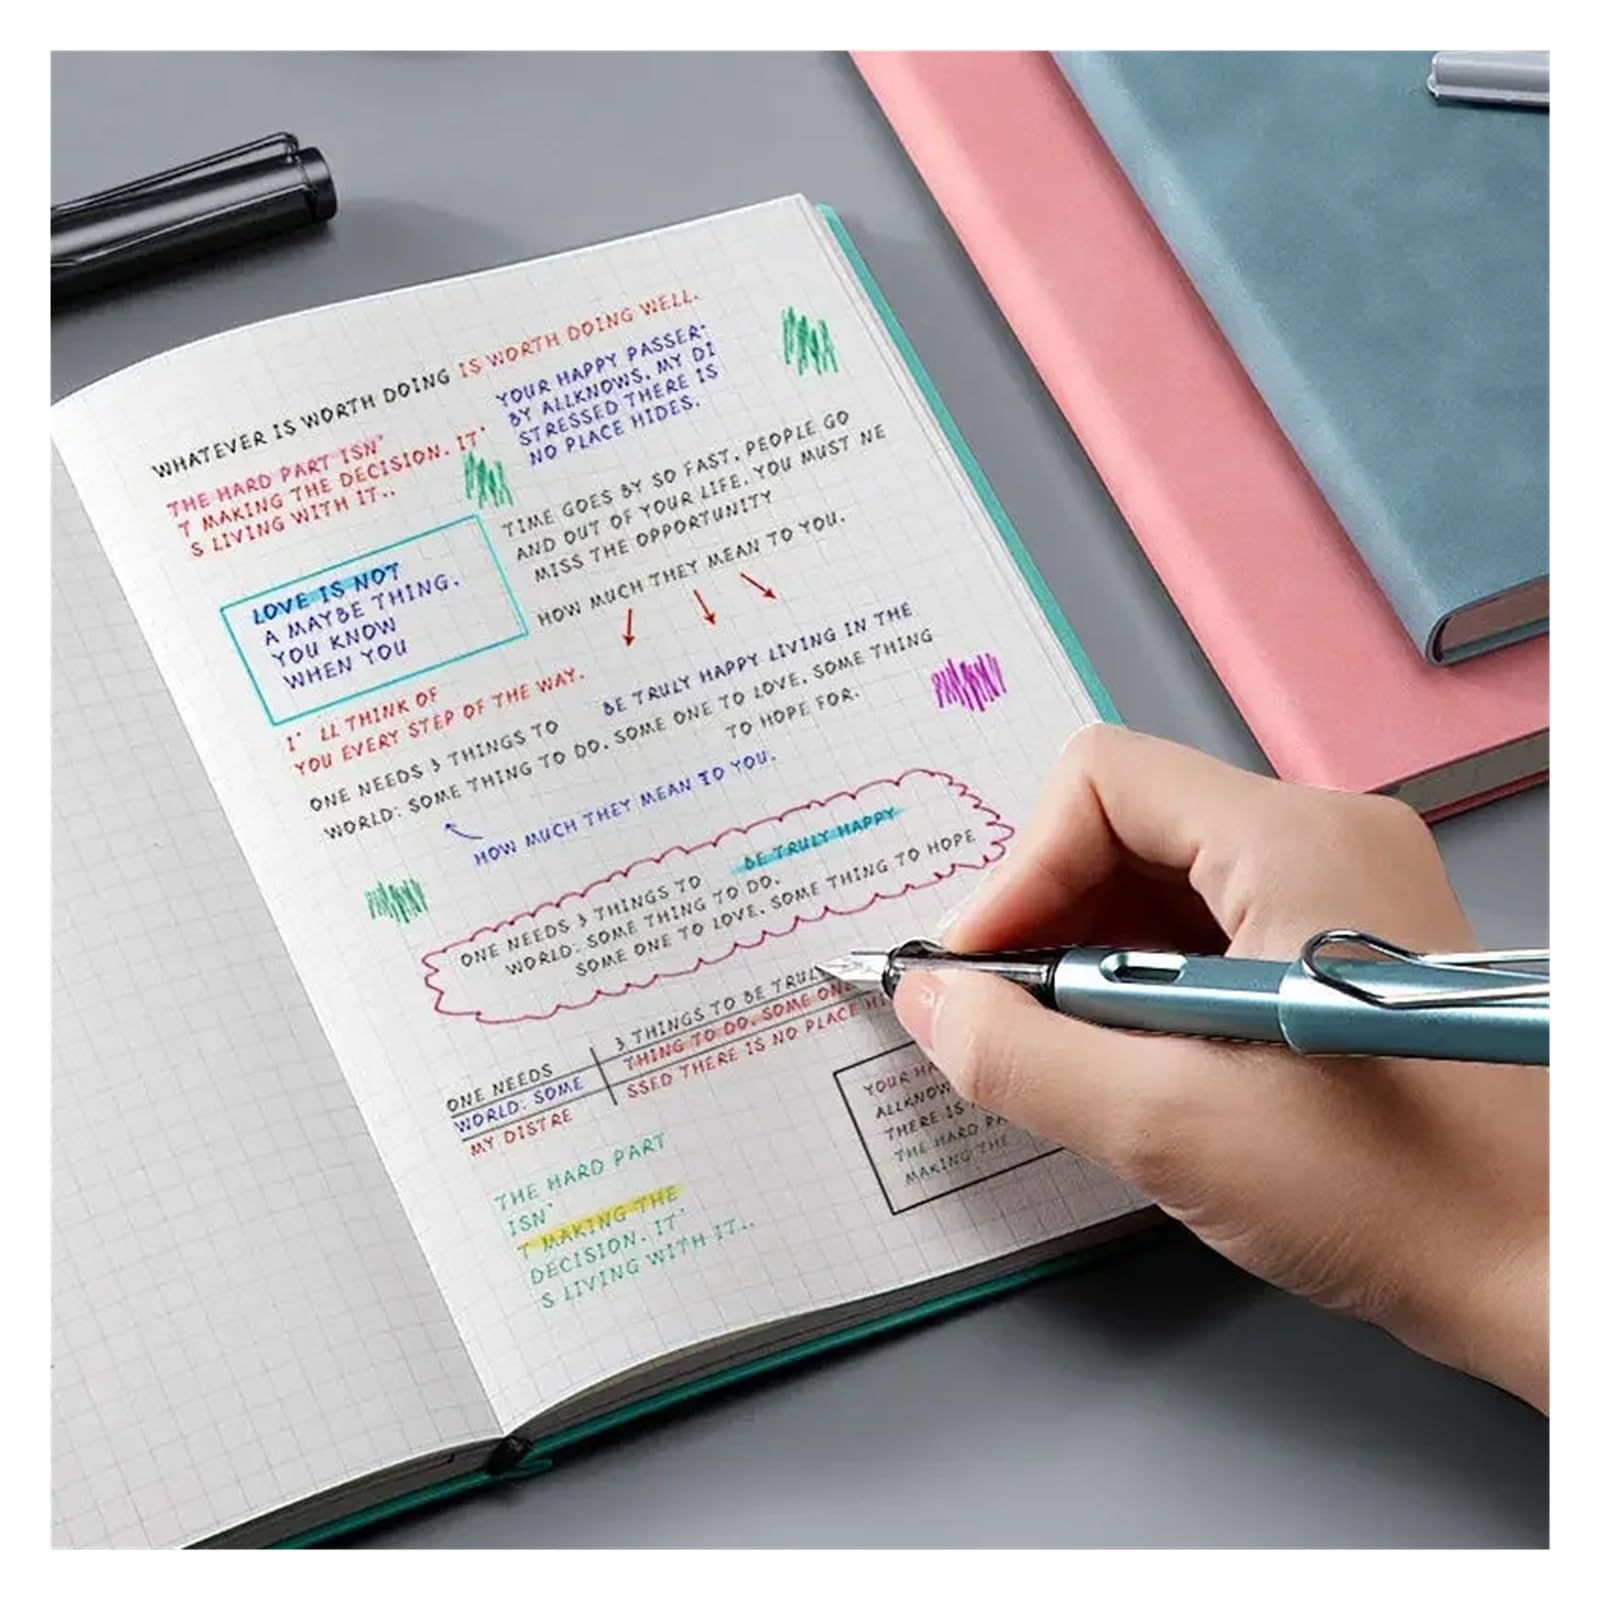 WHATEVER IS WORTH DOING IS WORTH DOING WELL.
THE HARD PART ISN'
T MAKING THE DECISION. IT'
S LIVING WITH IT..
YOUR HAPPY PASSER-
BY ALLKNOWS. MY DI
STRESSED THERE IS
NO PLACE HIDES.
TIME GOES BY SO FAST. PEOPLE GO
AND OUT OF YOUR LIFE. YOU MUST NE
MISS THE OPPORTUNITY
HOW MUCH THEY MEAN TO YOU.
LOVE IS NOT
A MAYBE THING.
YOU KNOW
WHEN YOU
I' LL THINK OF
YOU EVERY STEP OF THE WAY.
ONE NEEDS 3 THINGS TO BE TRULY HAPPY LIVING IN THE
WORLD: SOME THING TO DO. SOME ONE TO LOVE. SOME THING
TO HOPE FOR.
HOW MUCH THEY MEAN TO YOU.
ONE NEEDS 3 THINGS TO BE TRULY HAPPY
WORLD: SOME THING TO DO.
SOME ONE TO LOVE. SOME THING TO HOPE
ONE NEEDS 3 THINGS TO BE TRULY
WORLD: SOME THING TO DO. SOME ONE
MY DISTRE SSED THERE IS NO PLACE HI
YOUR HA
ALLKNOW
THERE IS
THE HARD PA
MAKING THE
THE HARD PART
ISN'
T MAKING THE
DECISION. IT'
S LIVING WITH IT..